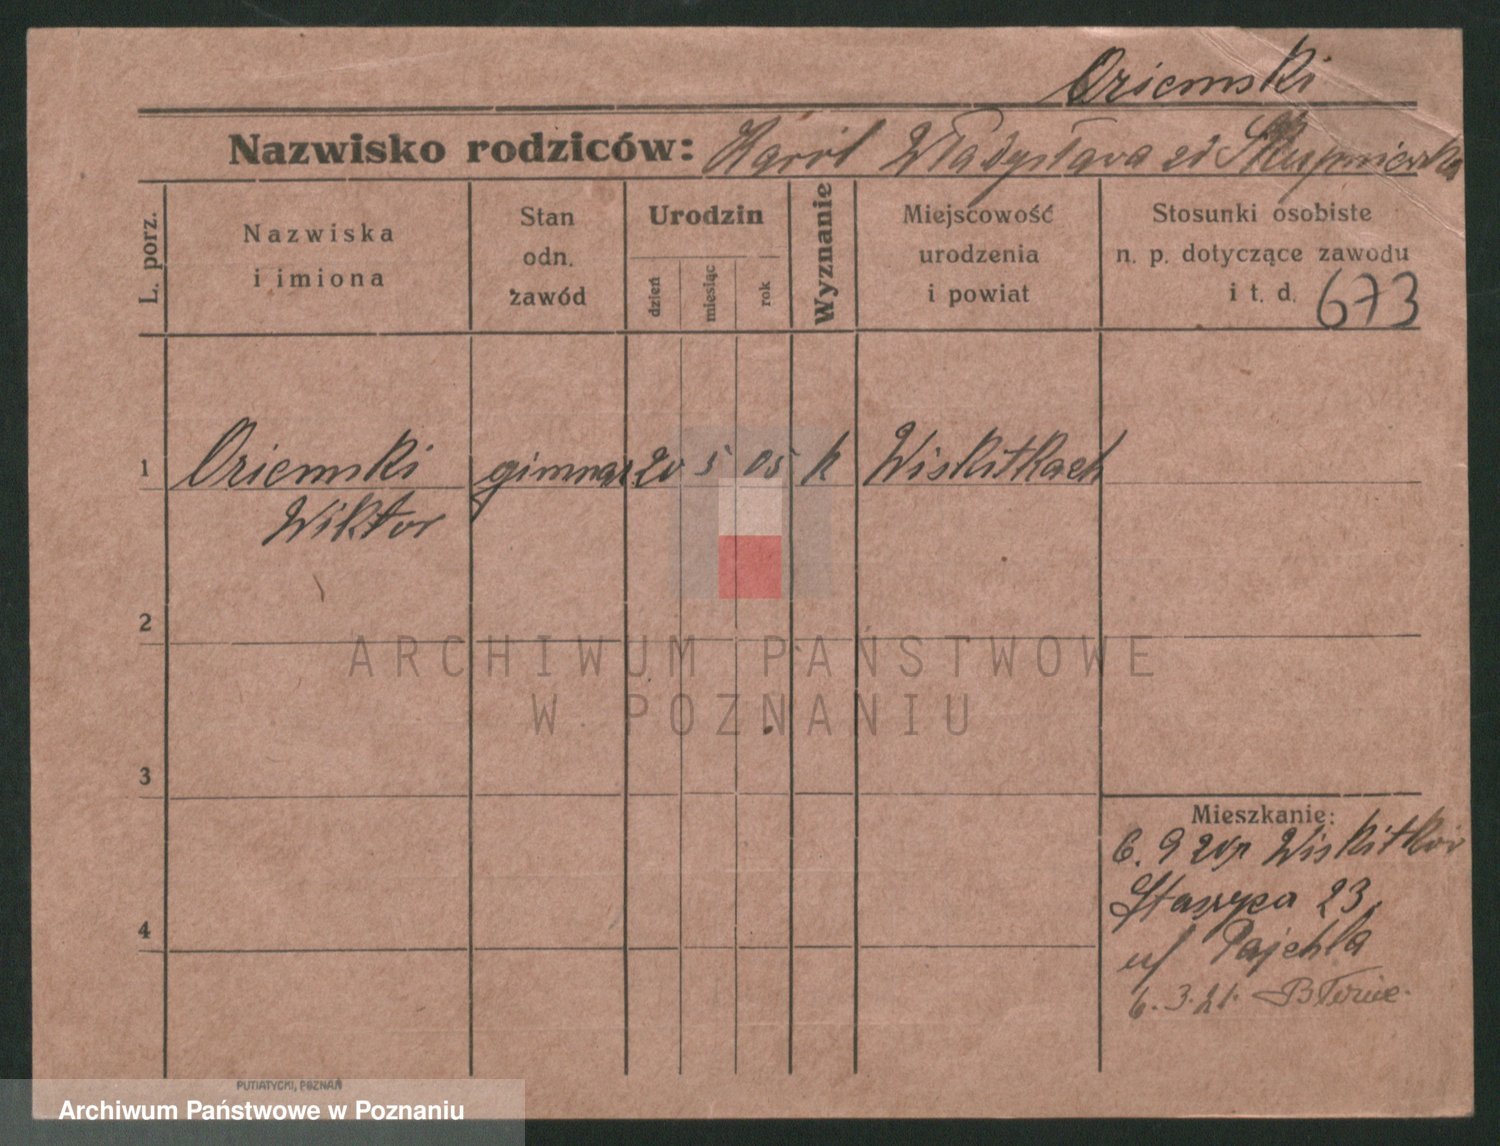 Oziemski
Nazwisko rodziców: Karól Władysława zd Skupniewska
L. porz.
Nazwiska
i imiona
Stan
odn.
zawód
Urodzin
dzień
miesiąc
rok
Wyznanie
Miejscowość
urodzenia
i powiat
Stosunki osobiste
n. p. dotyczące zawodu
i t. d. 673
1 Oziemski gimnaz 20 5 05 k Wiskitkach
Wiktor
2
3
4
Mieszkanie:
6. 9 20 r Wiskitków
Staszyca 23
u/ Pajchla
6. 3. 21.
PUTIATYCKI, POZNAŃ
ARCHIWUM PAŃSTWOWE
W POZNANIU
Archiwum Państwowe w Poznaniu